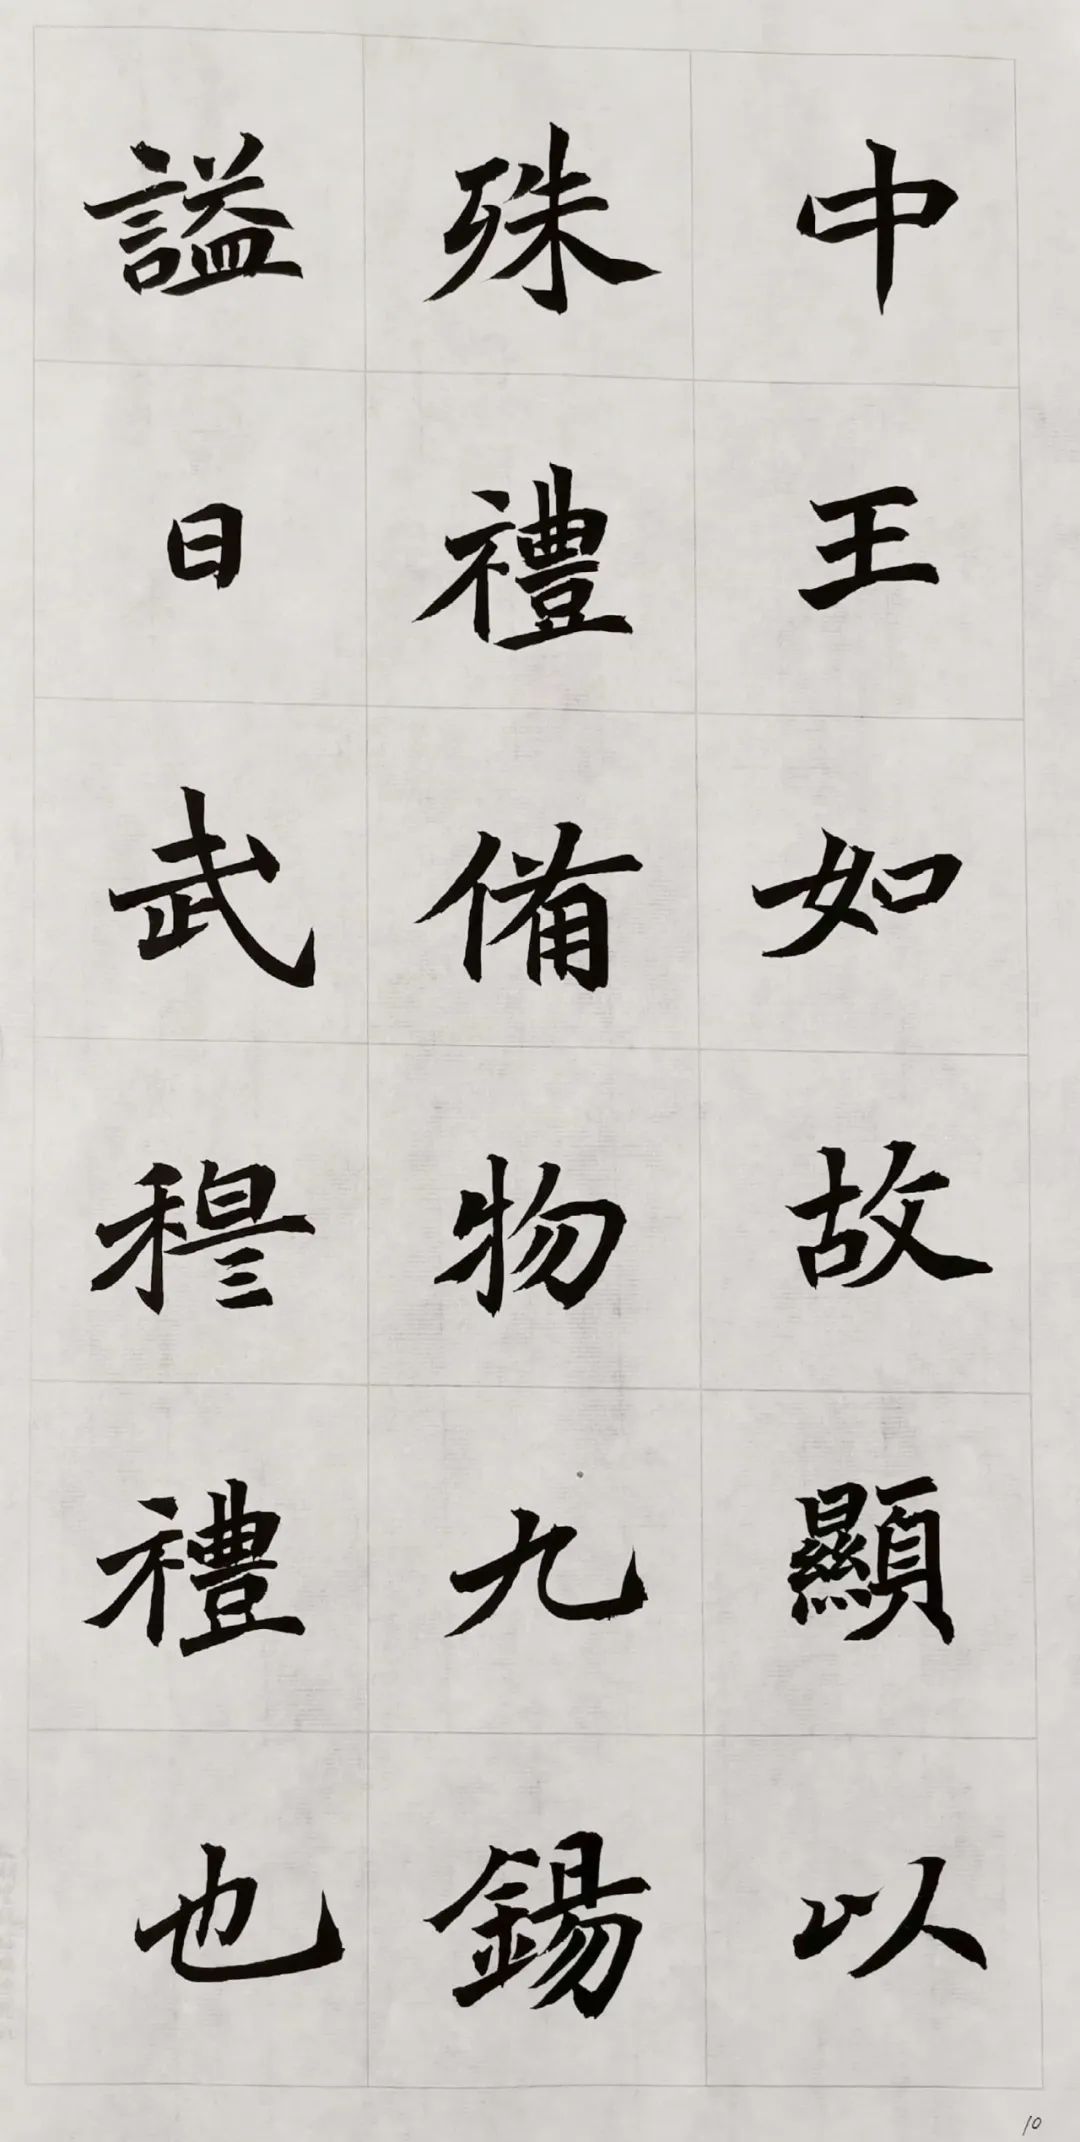 中王如故顯以
殊禮俻物九錫
謚曰武穆禮也
10